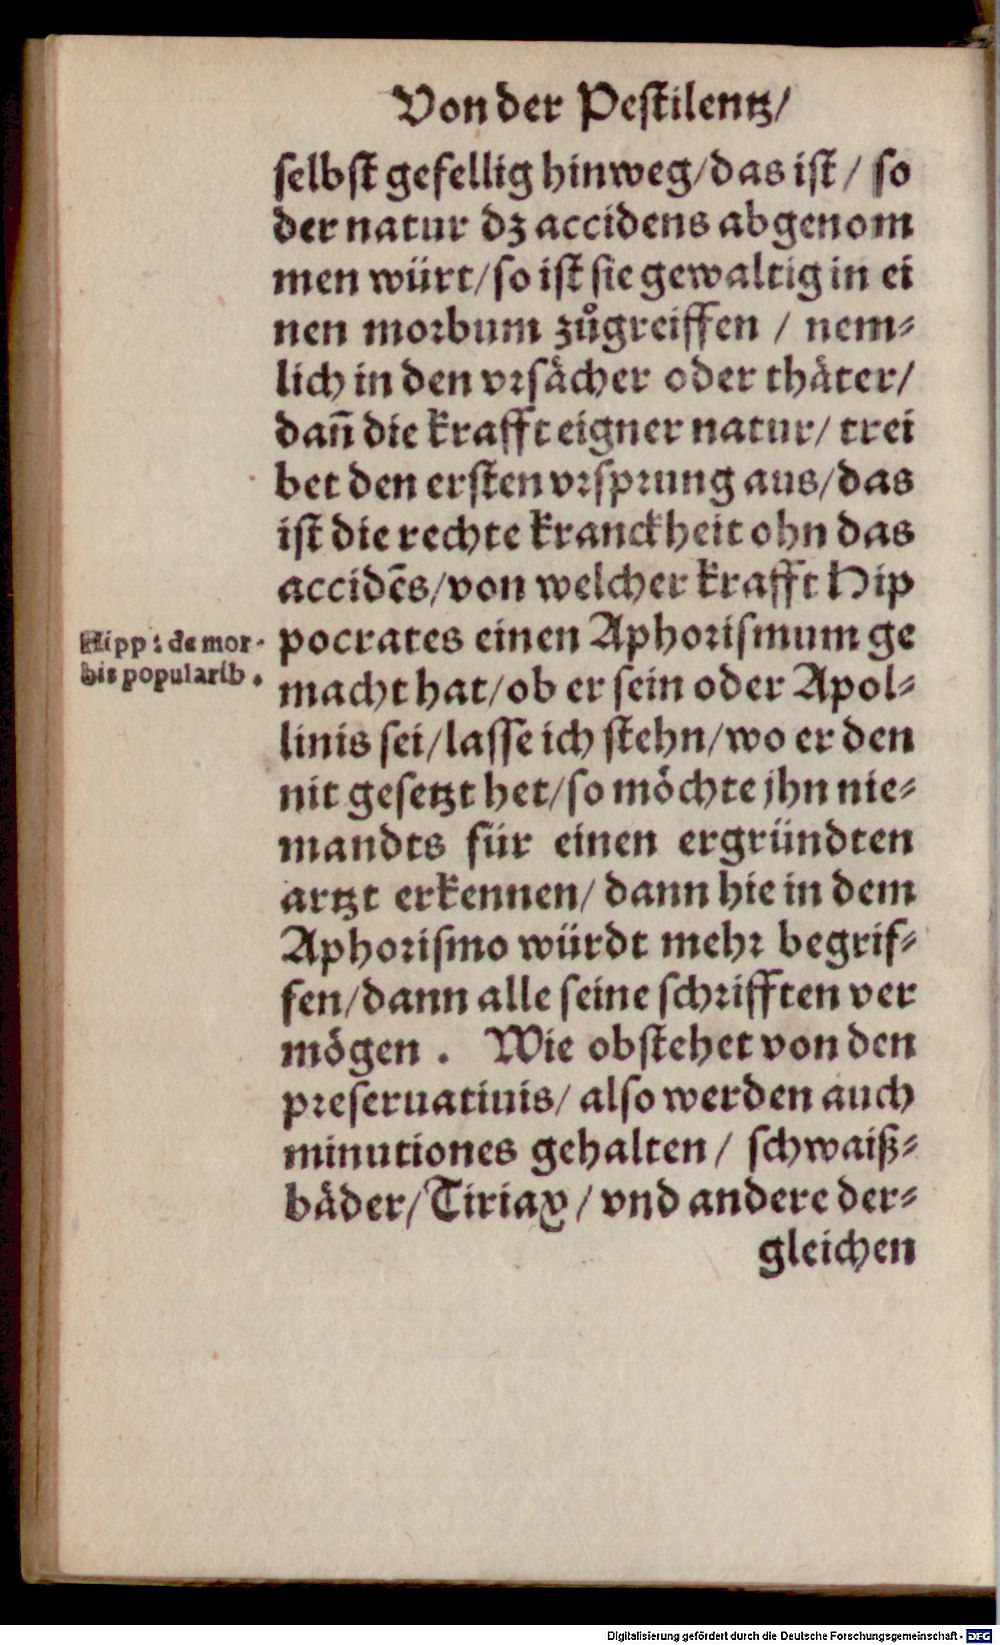 Von der Pestilentz/
selbst gefellig hinweg/das ist/ so
der natur dz accidens abgenom
men würt/so ist sie gewaltig in ei
nen morbum zůgreiffen / nem-
lich in den vrsächer oder thäter/
dañ die krafft eigner natur/ trei
bet den ersten vrsprung aus/das
ist die rechte kranckheit ohn das
accidēs/von welcher krafft Hip
Hipp: de mor-
bis popularib.
pocrates einen Aphorismum ge
macht hat/ob er sein oder Apol-
linis sei/lasse ich stehn/wo er den
nit gesetzt het/so möchte jhn nie-
mandts für einen ergründten
artzt erkennen/ dann hie in dem
Aphorismo würdt mehr begrif-
fen/dann alle seine schrifften ver
mögen . Wie obstehet von den
preseruatiuis/ also werden auch
minutiones gehalten / schwaiß-
bäder/Tiriax / vnd andere der-
gleichen
Digitalisierung gefördert durch die Deutsche Forschungsgemeinschaft - DFG